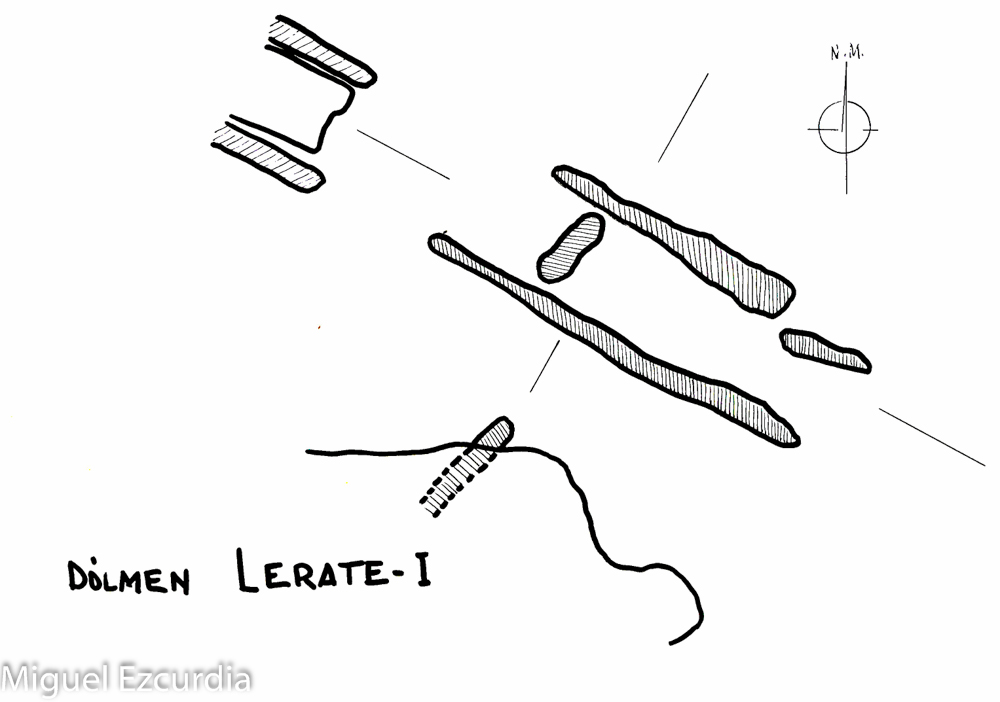 N.M.
DÓLMEN LERATE-I
Miguel Ezcurdia